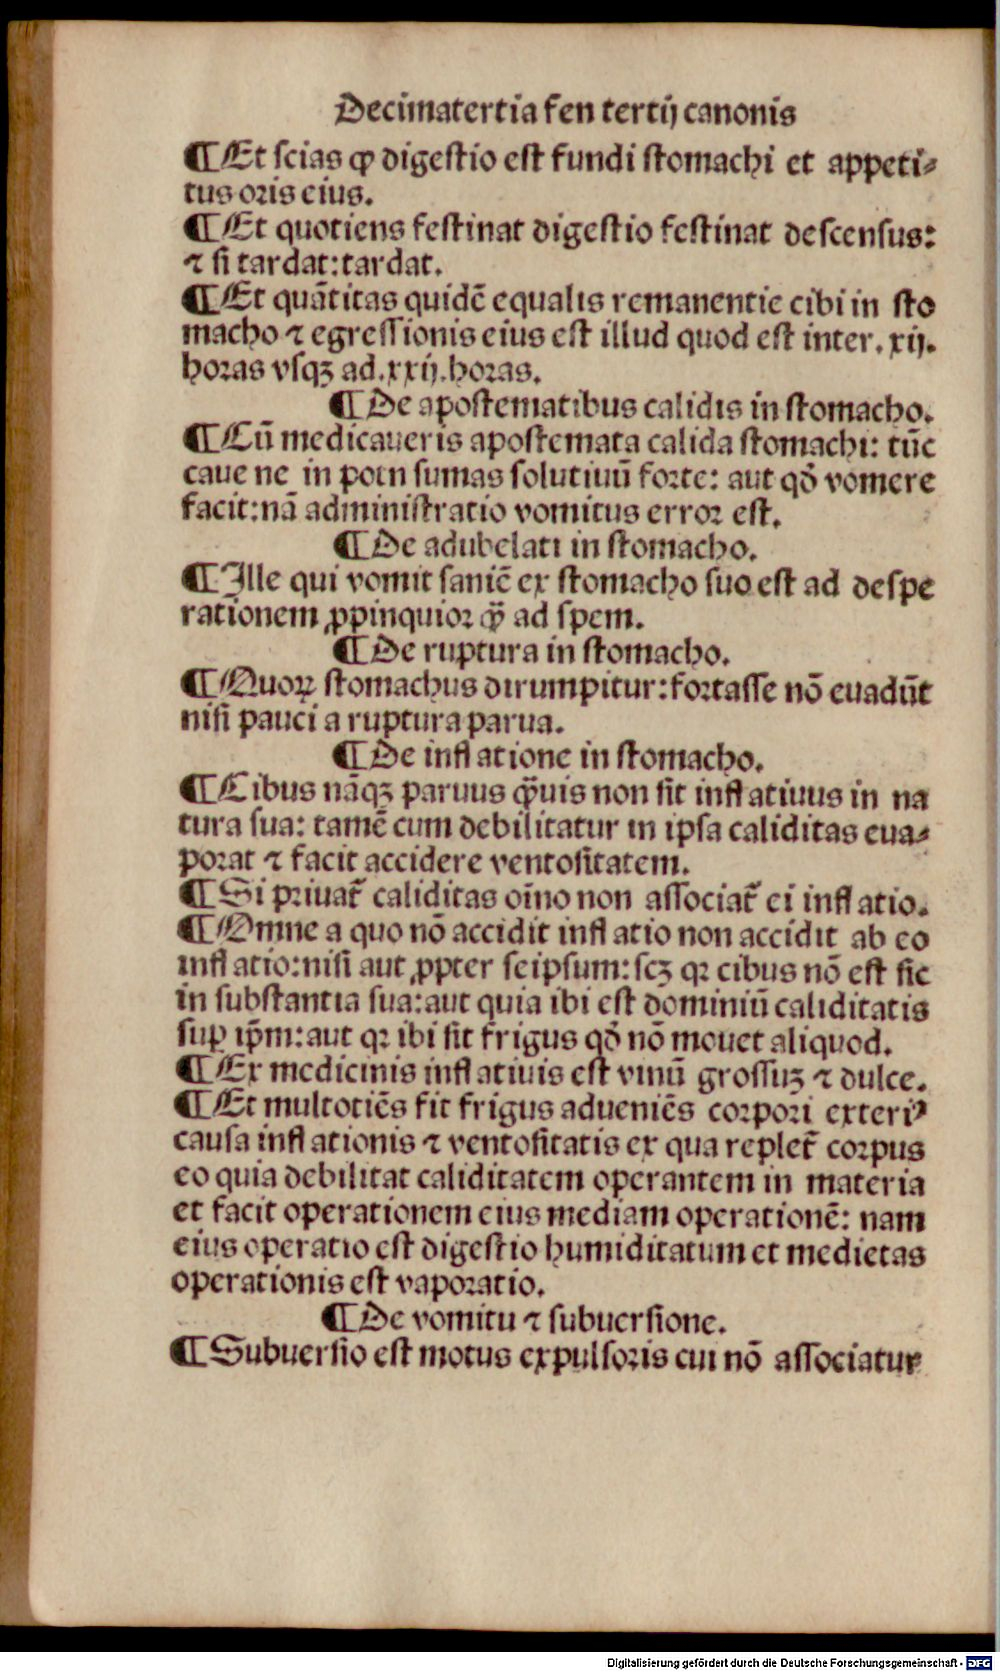 Decimatertia fen tertij canonis
¶Et scias ꝙ digestio est fundi stomachi et appeti⸗
tus oris eius.
¶Et quotiens festinat digestio festinat descensus:
⁊ si tardat:tardat.
¶Et quãtitas quidẽ equalis remanentie cibi in sto
macho ⁊ egressionis eius est illud quod est inter.xij.
horas vsqꝫ ad.xxij.horas.
¶De apostematibus calidis in stomacho.
¶Cũ medicaueris apostemata calida stomachi: tũc
caue ne in potu sumas solutiuũ forte: aut qð vomere
facit:nã administratio vomitus error est.
¶De adubelati in stomacho.
¶Ille qui vomit saniẽ ex stomacho suo est ad despe
rationem ꝓpinquior q̃ȝ ad spem.
¶De ruptura in stomacho.
¶Quoꝝ stomachus dirumpitur:fortasse nõ euadũt
nisi pauci a ruptura parua.
¶De inflatione in stomacho.
¶Cibus nãqꝫ paruus q̃uis non sit inflatiuus in na
tura sua: tamẽ cum debilitatur in ipsa caliditas eua⸗
porat ⁊ facit accidere ventositatem.
¶Si priuat̃ caliditas oĩno non associat̃ ei inflatio.
¶Omne a quo nõ accidit inflatio non accidit ab eo
inflatio:nisi aut ꝓpter seipsum:scꝫ qꝛ cibus nõ est sic
in substantia sua:aut quia ibi est dominiũ caliditatis
suꝑ ip̃m:aut qꝛ ibi sit frigus qð nõ mouet aliquod.
¶Ex medicinis inflatiuis est vinũ grossuꝫ ⁊ dulce.
¶Et multotiẽs fit frigus adueniẽs corpori exteriꝰ
causa inflationis ⁊ ventositatis ex qua replet̃ corpus
eo quia debilitat caliditatem operantem in materia
et facit operationem eius mediam operationẽ: nam
eius operatio est digestio humiditatum et medietas
operationis est vaporatio.
¶De vomitu ⁊ subuersione.
¶Subuersio est motus expulsoris cui nõ associatur
Digitalisierung gefördert durch die Deutsche Forschungsgemeinschaft - DFG